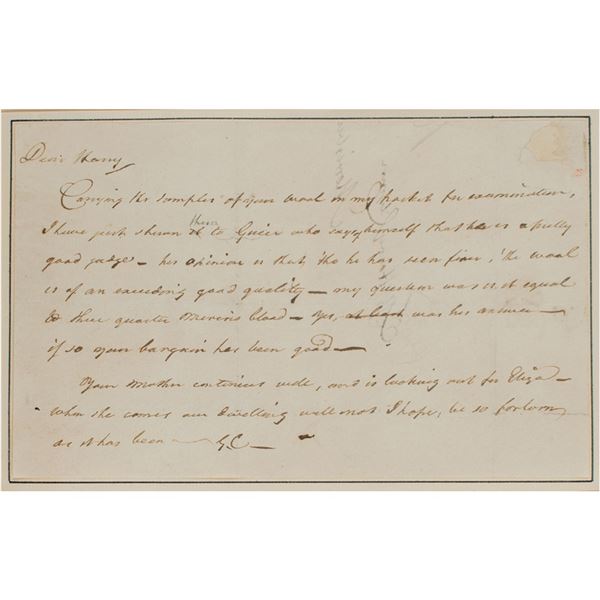 Dear Harry
Carrying the samples of your wool in my pocket for examination,
I have just shewn them it to Grier who says himself that he is a pretty
good judge — his opinion is that, tho he has seen finer, the wool
is of an exceeding good quality — my question was is it equal
to three quarter merino blood — yes, at least was his answer —
if so your bargain has been good —
Your Mother continues well, and is looking out for Eliza —
when she comes our dwelling will not I hope, be so forlorn
as it has been — G C —